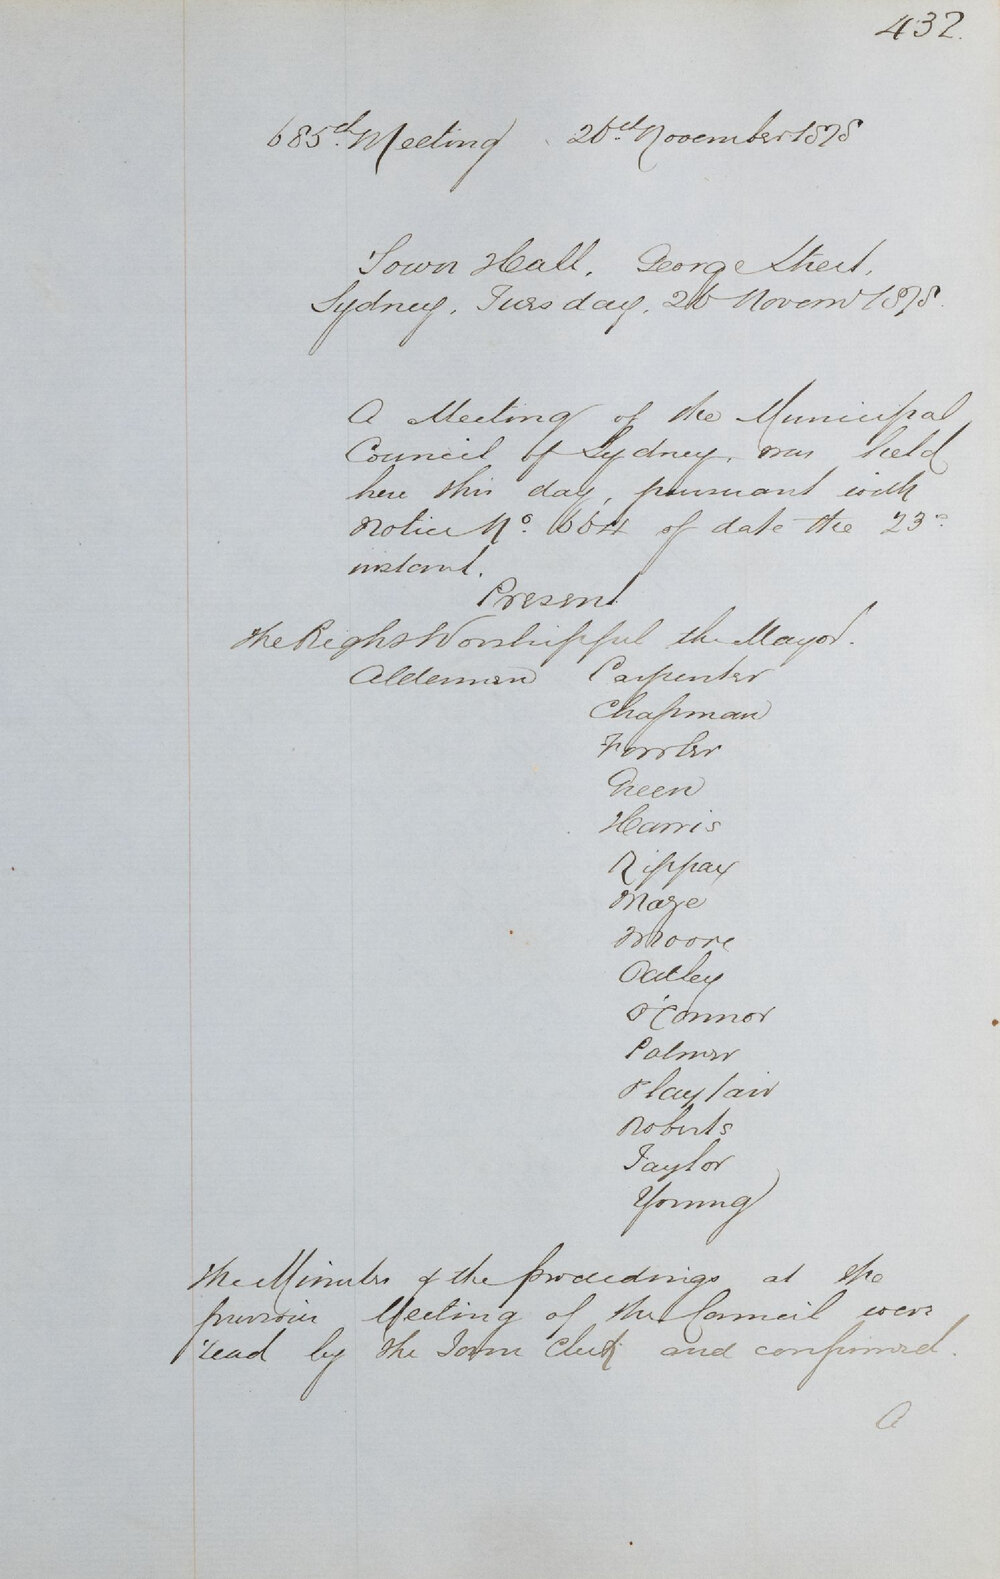 432.
685th Meeting 26th November 1878
Town Hall, George Street,
Sydney, Tuesday, 26 Novemr 1878.
A Meeting of the Municipal
Council of Sydney, was held
here this day, pursuant with
Notice No. 664 of date the 23rd
instant.
Present
The Right Worshipful the Mayor.
Aldermen Carpenter
Chapman
Fowler
Green
Harris
Kippax
Maze
Moore
Oatley
O'Connor
Palmer
Playfair
Roberts
Taylor
Young
The Minutes of the proceedings at the
previous Meeting of the Council were
read by the Town Clerk and confirmed.
A